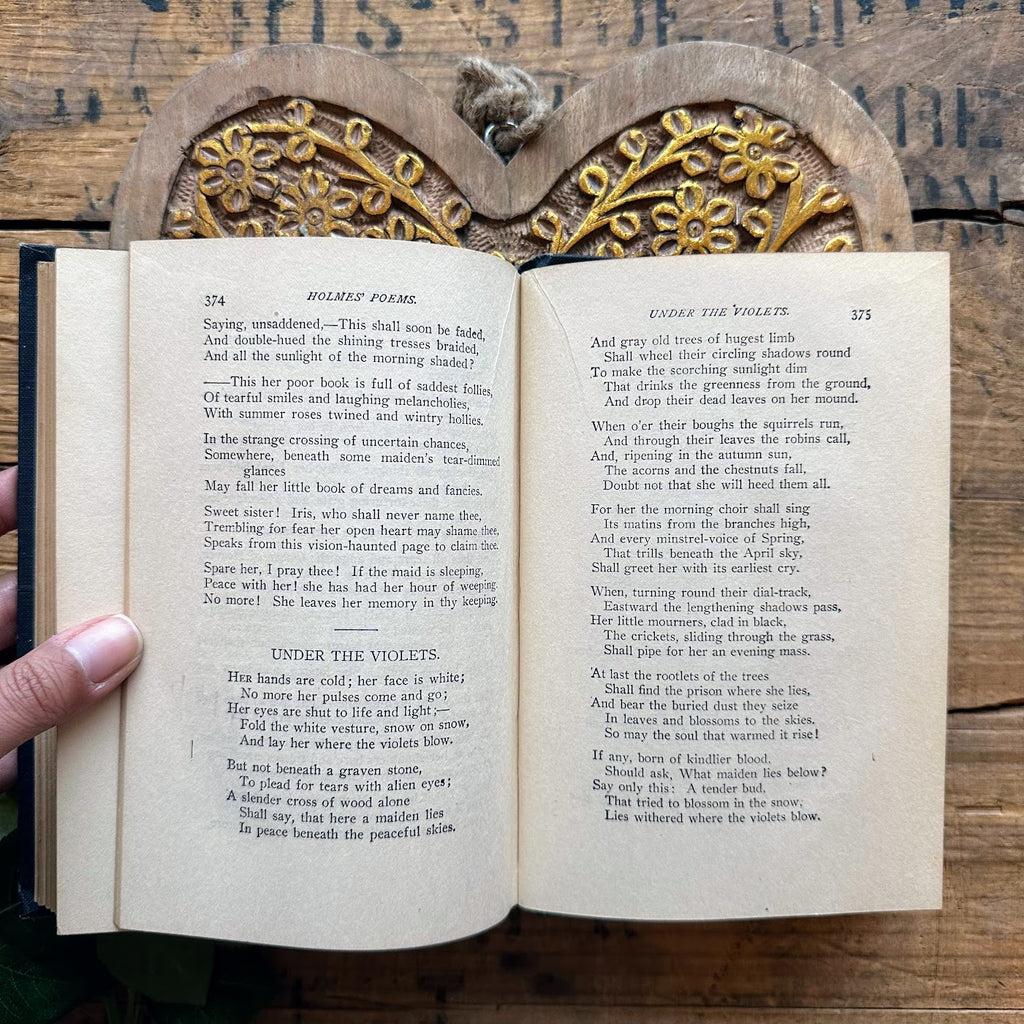 374
HOLMES' POEMS.
Saying, unsaddened,—This shall soon be faded,
And double-hued the shining tresses braided,
And all the sunlight of the morning shaded?
——This her poor book is full of saddest follies,
Of tearful smiles and laughing melancholies,
With summer roses twined and wintry hollies.
In the strange crossing of uncertain chances,
Somewhere, beneath some maiden's tear-dimmed
glances
May fall her little book of dreams and fancies.
Sweet sister! Iris, who shall never name thee,
Trembling for fear her open heart may shame thee,
Speaks from this vision-haunted page to claim thee.
Spare her, I pray thee! If the maid is sleeping,
Peace with her! she has had her hour of weeping.
No more! She leaves her memory in thy keeping.
UNDER THE VIOLETS.
HER hands are cold; her face is white;
No more her pulses come and go;
Her eyes are shut to life and light;—
Fold the white vesture, snow on snow,
And lay her where the violets blow.
But not beneath a graven stone,
To plead for tears with alien eyes;
A slender cross of wood alone
Shall say, that here a maiden lies
In peace beneath the peaceful skies.
UNDER THE VIOLETS.
375
And gray old trees of hugest limb
Shall wheel their circling shadows round
To make the scorching sunlight dim
That drinks the greenness from the ground,
And drop their dead leaves on her mound.
When o'er their boughs the squirrels run,
And through their leaves the robins call,
And, ripening in the autumn sun,
The acorns and the chestnuts fall,
Doubt not that she will heed them all.
For her the morning choir shall sing
Its matins from the branches high,
And every minstrel-voice of Spring,
That trills beneath the April sky,
Shall greet her with its earliest cry.
When, turning round their dial-track,
Eastward the lengthening shadows pass,
Her little mourners, clad in black,
The crickets, sliding through the grass,
Shall pipe for her an evening mass.
At last the rootlets of the trees
Shall find the prison where she lies,
And bear the buried dust they seize
In leaves and blossoms to the skies.
So may the soul that warmed it rise!
If any, born of kindlier blood,
Should ask, What maiden lies below?
Say only this: A tender bud,
That tried to blossom in the snow,
Lies withered where the violets blow.